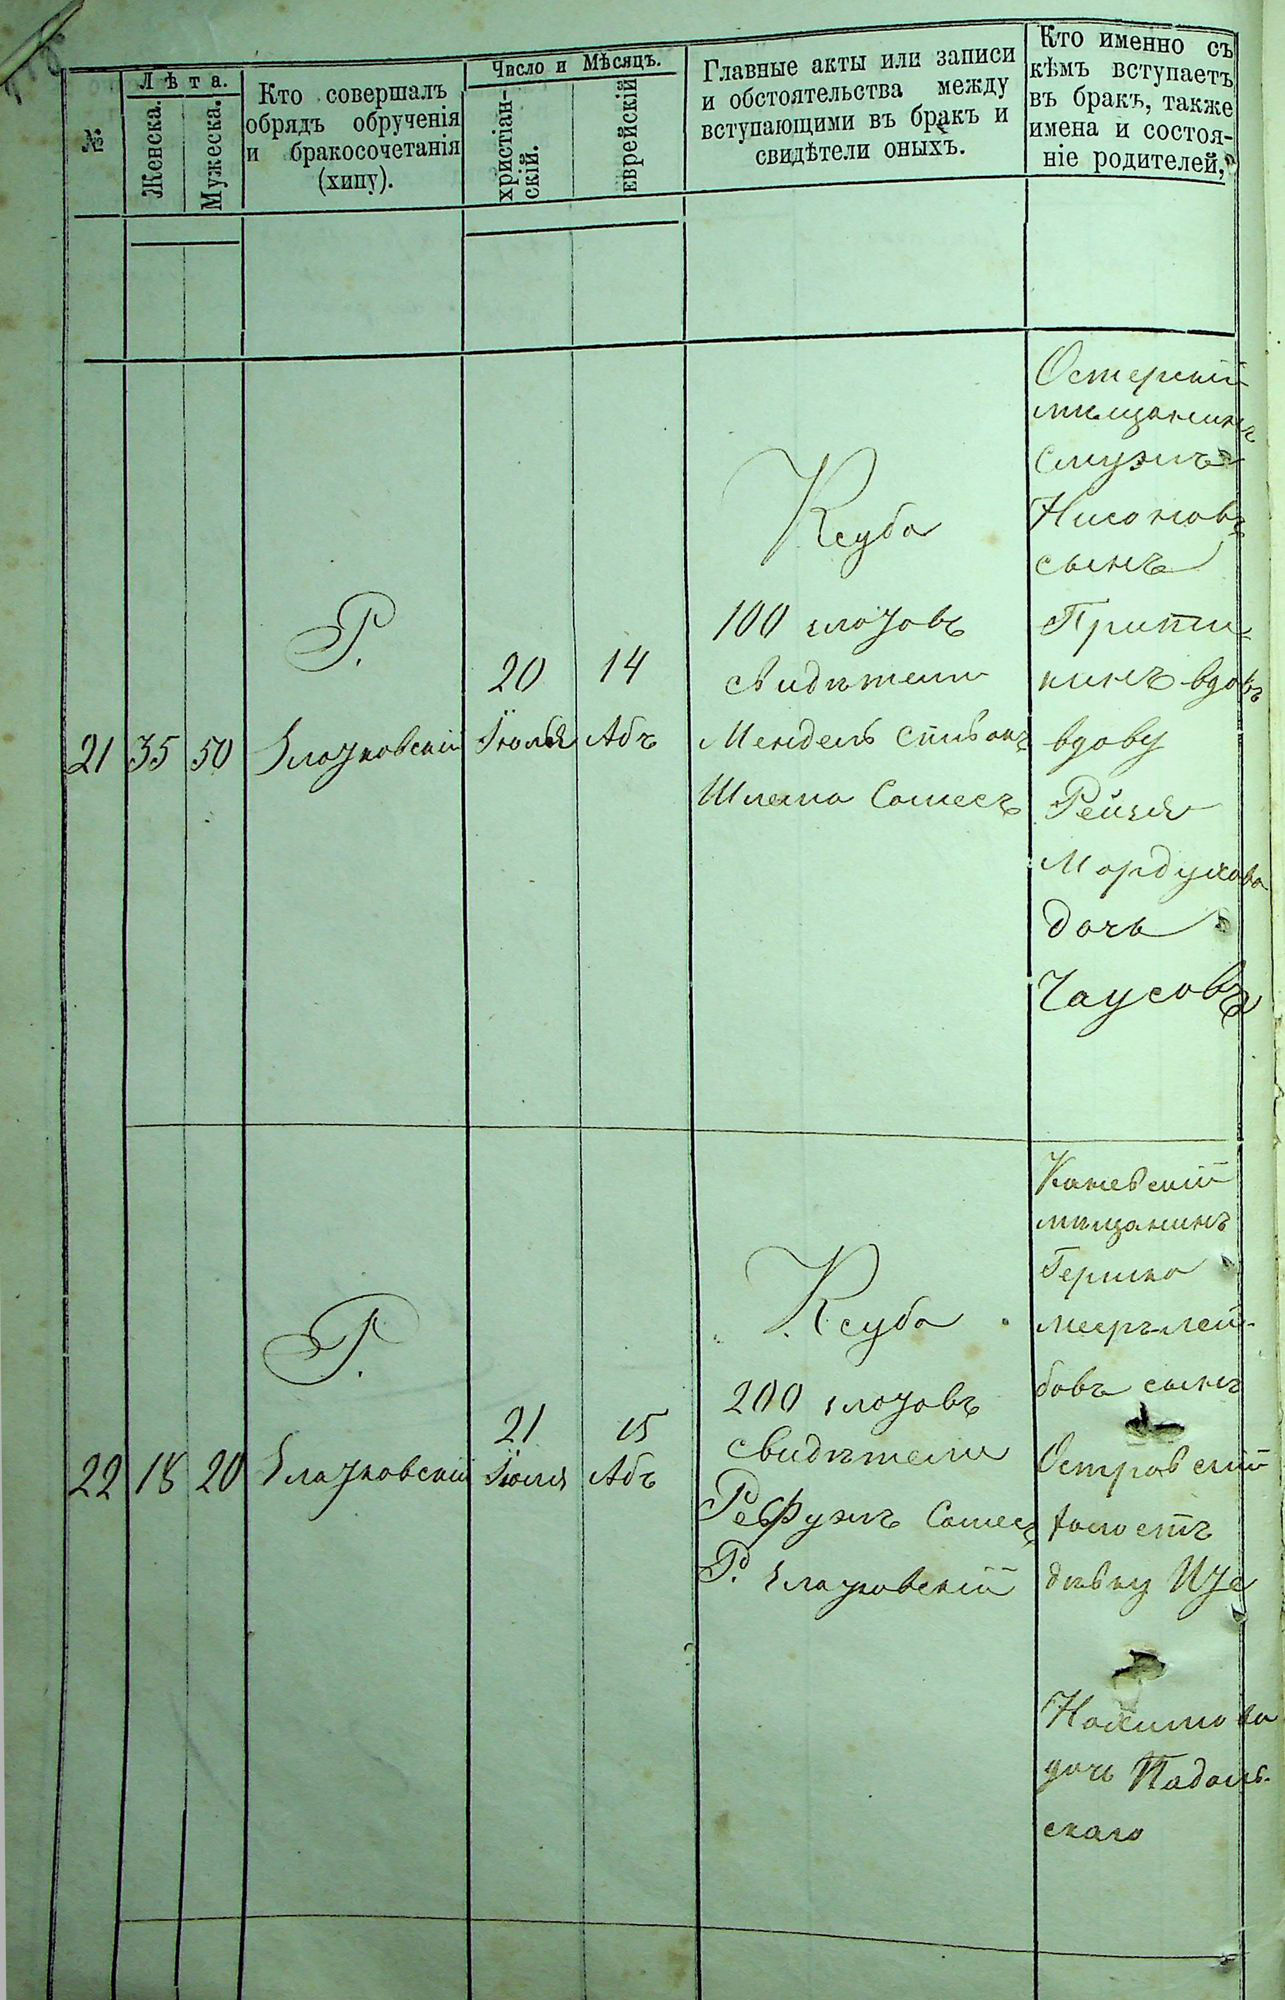 №
Лѣта.
Женска.
Мужеска.
Кто совершалъ
обрядъ обрученія
и бракосочетанія
(хипу).
Число и Мѣсяцъ.
христіан-
скій.
еврейскій
Главные акты или записи
и обстоятельства между
вступающими въ бракъ и
свидѣтели оныхъ.
Кто именно съ
кѣмъ вступаетъ
въ бракъ, также
имена и состоя-
ніе родителей,
21
35
50
Р.
20
Іюля
14
Абъ
Ксуба
100 злотовъ
свидѣтели
Мендель Спивакъ
Шлема Сомесъ
Остерскій
мѣщанинъ
Шмуэлъ
Нисоновъ
сынъ
вдовъ
вдову
Рейзя
Мордухова
дочь
Чаусовъ
22
18
20
Р.
21
Іюля
15
Абъ
Ксуба
200 злотовъ
Свидѣтели
Рефуэлъ Сомесъ
Каневскій
мѣщанинъ
Гершко
Мееръ-Лей-
бовъ сынъ
Островскій
холостъ
дѣвку
Нахимова
дочь Падоль-
скаго